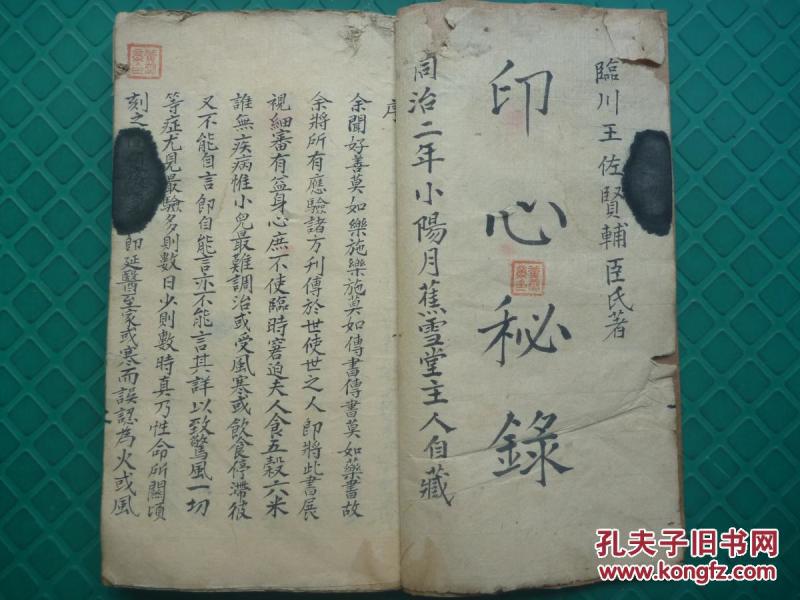 臨川王佐賢輔臣氏著
印心秘錄
同治二年小陽月蕉雪堂主人自藏
序
余聞好善莫如樂施樂施莫如傳書傳書莫如藥書故
余將所有應驗諸方刊傳於世使世之人即將此書展
視細審有益身心庶不使臨時窘迫夫人食五穀六米
誰無疾病惟小兒最難調治或受風寒或飲食停滯彼
又不能自言即自能言亦不能言其詳以致驚風一切
等症尤見最驗多則數日少則數時真乃性命所關頃
刻之即延醫至家或寒而誤認為火或風
孔夫子旧书网
www.kongfz.com